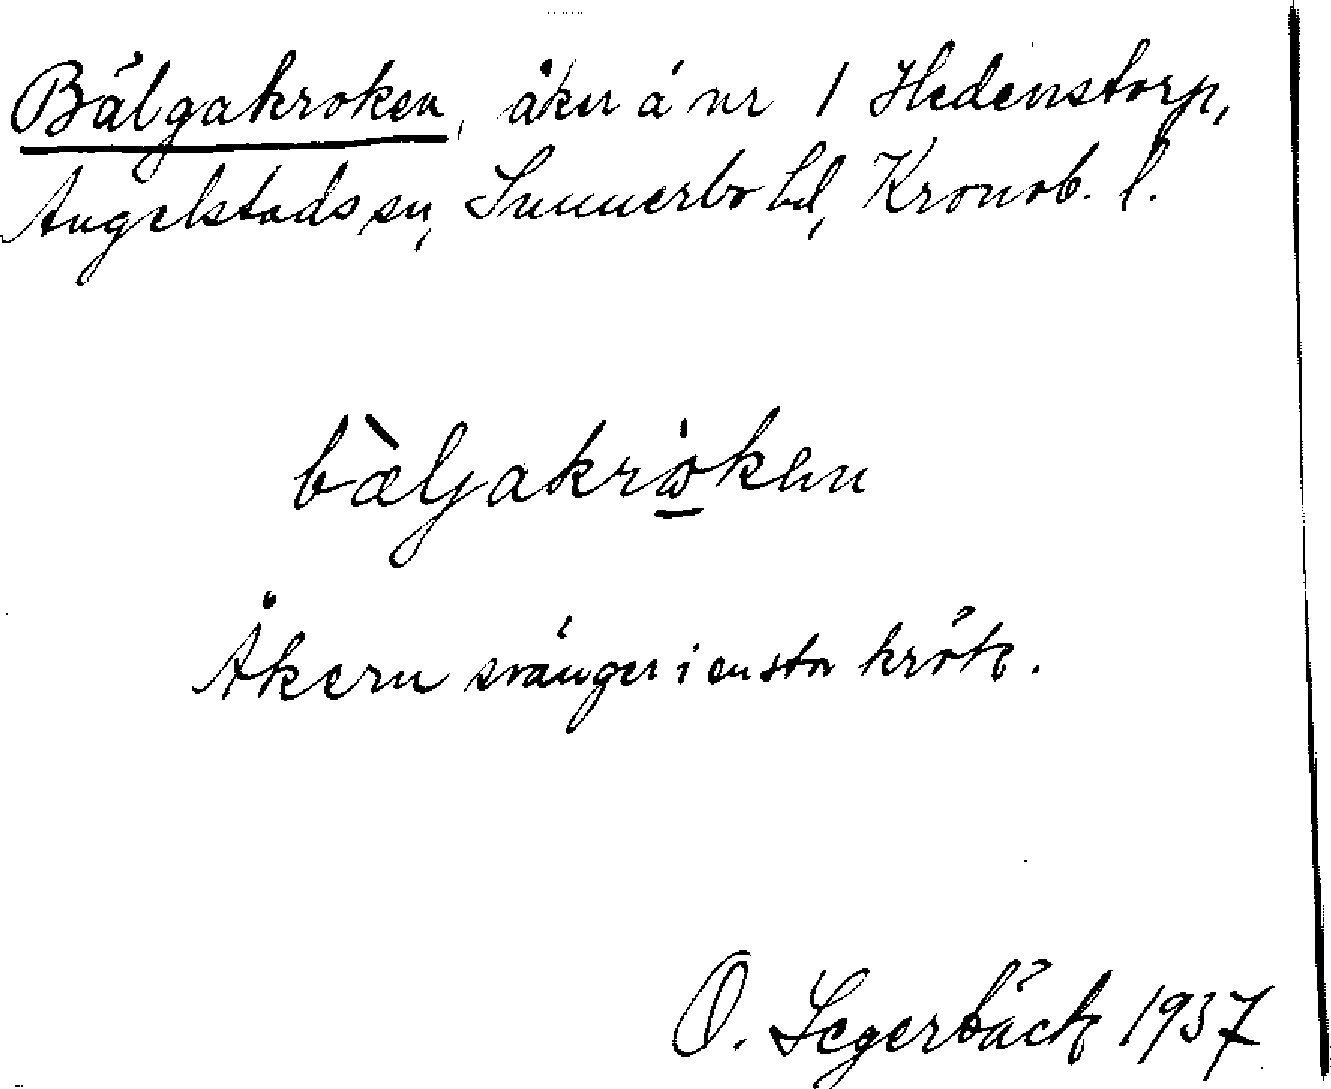 Bälgakroken, åker å nr 1 Hedenstorp,
Angelstads sn, Sunnerbo hd, Kronob. l.
bæ̀lgakrɷ̀ken
Åkern svänger i en stor krök.
O. Segerbäck 1937